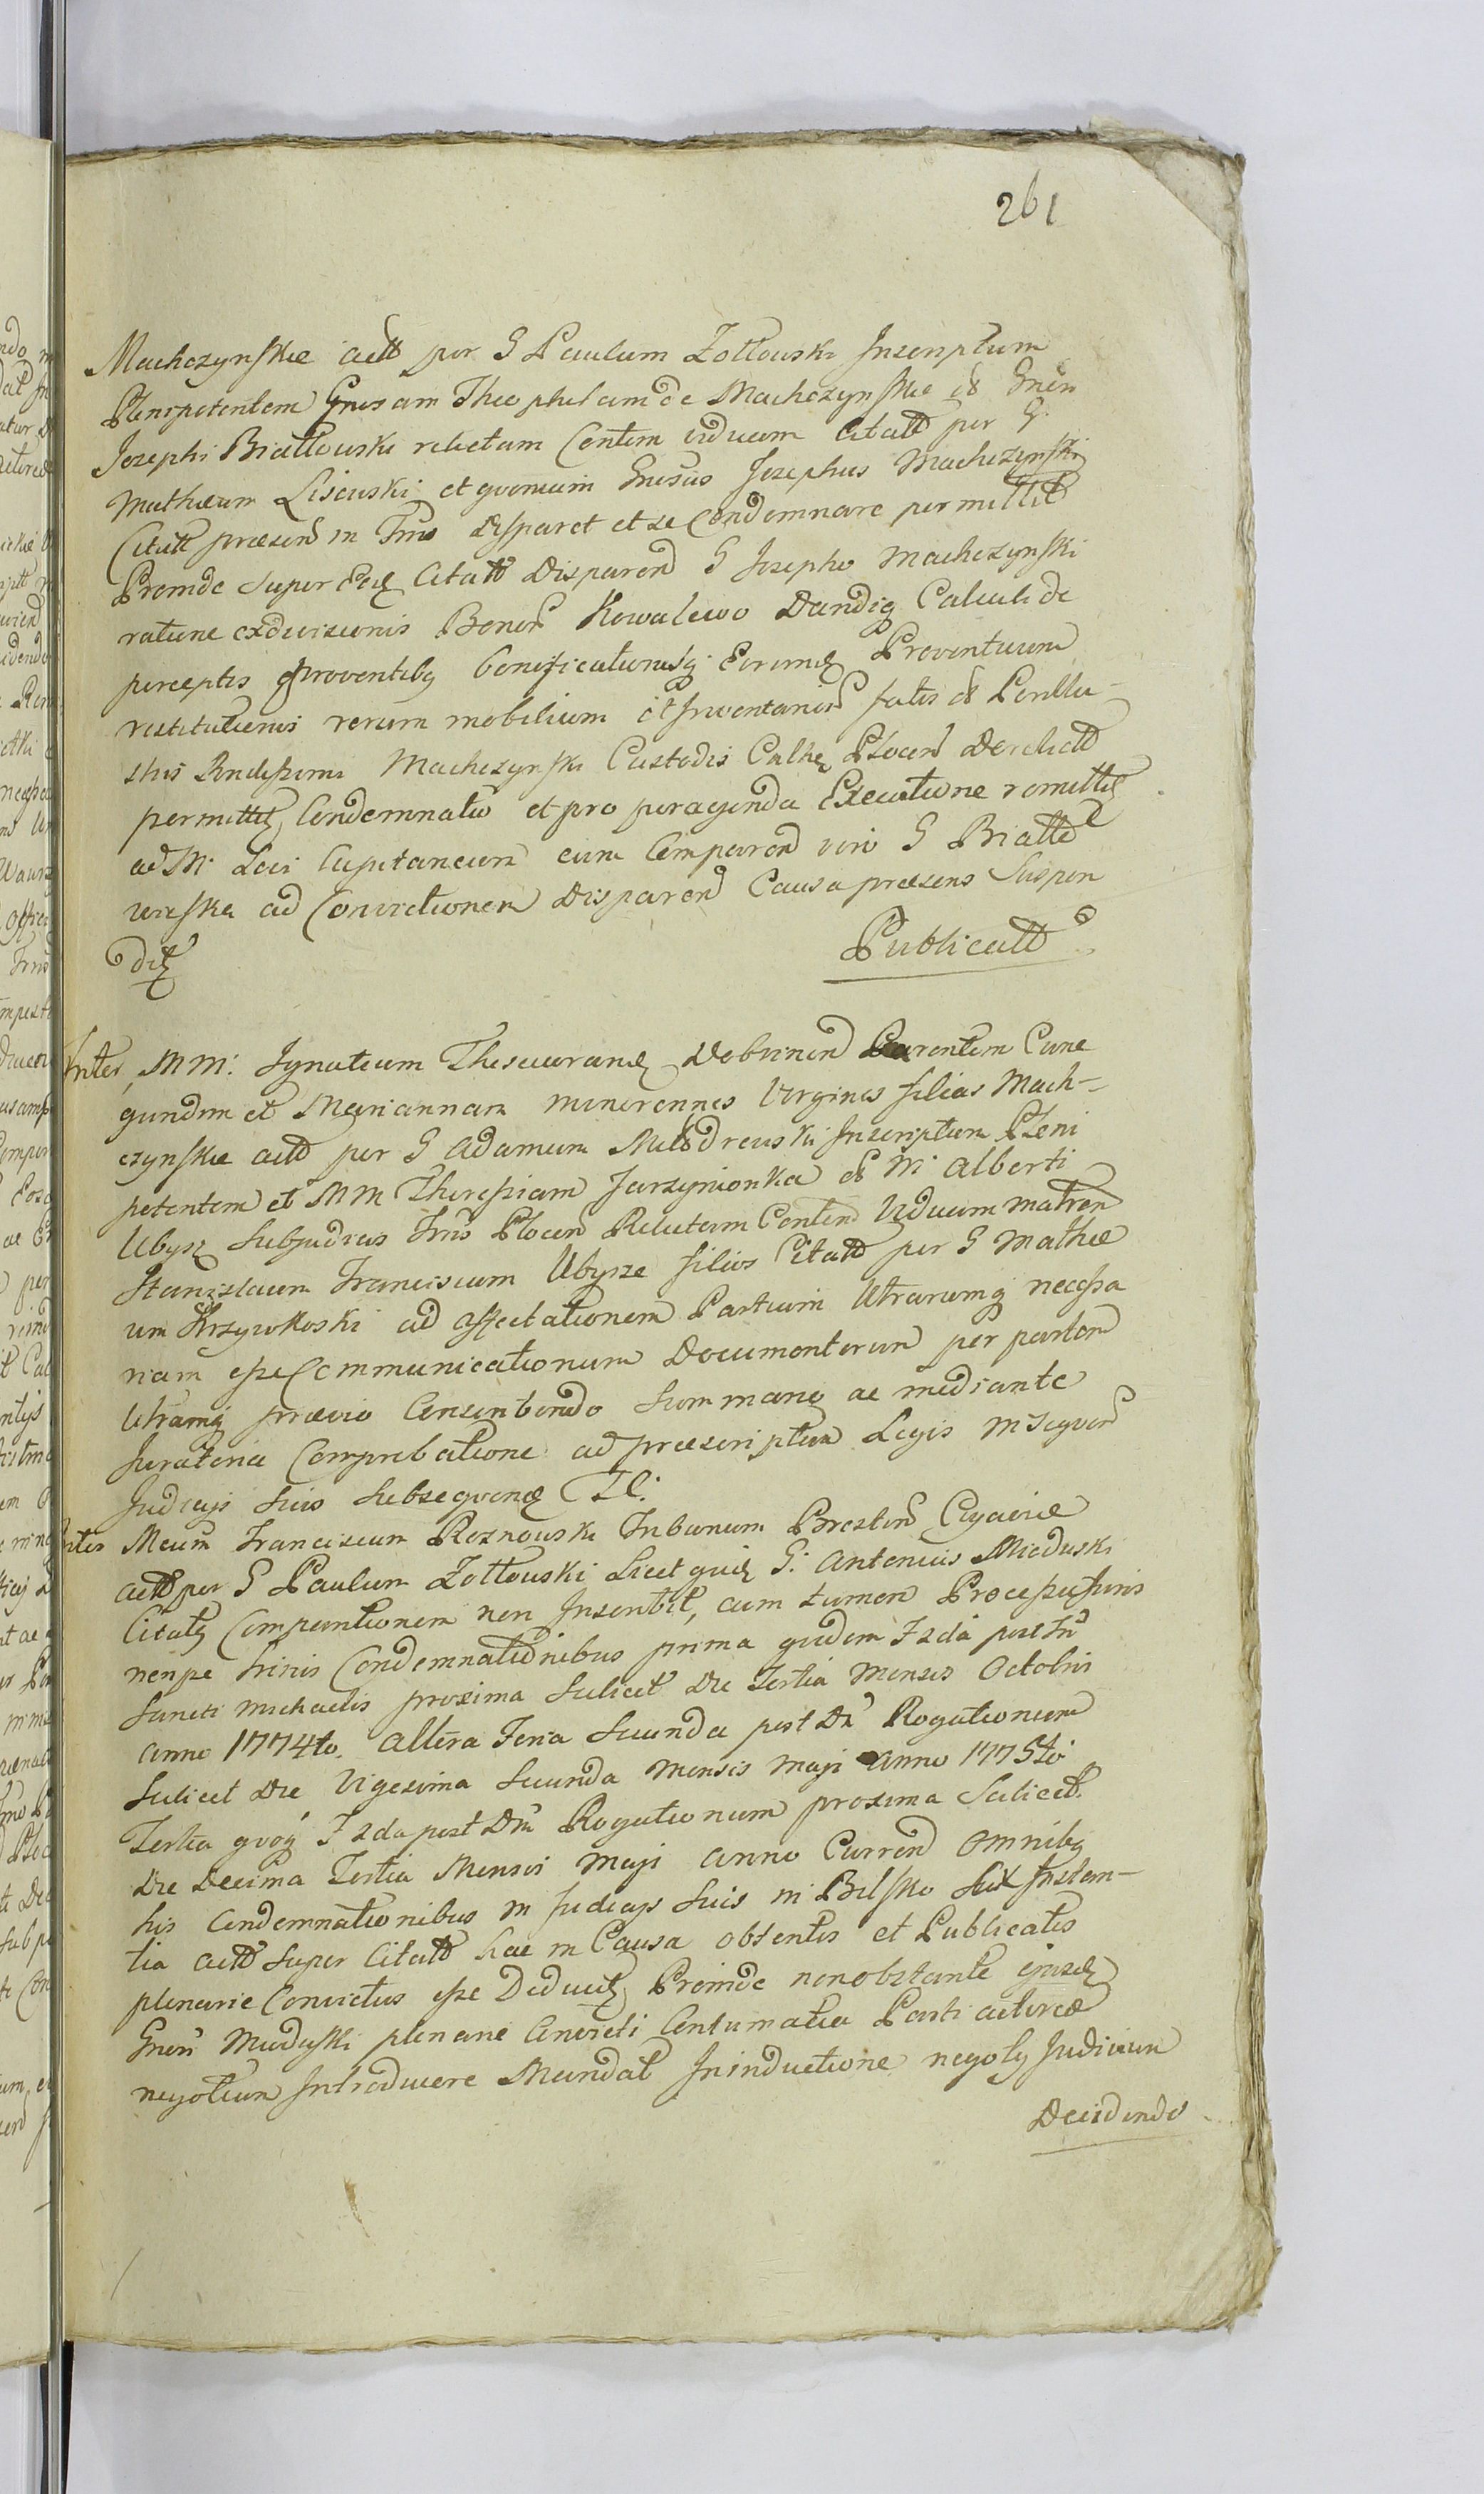 261
Machczynskie actt per G Paulum Zołtowski Inscriptum
Plenipotentem Gnosam Theophilam de Machczynskie G Gnen
Josephi Białłowski relictam Contem viduam Citatt per G
Mathæum Lisowski et quoniam Gnosus Josephus Machczynski
Citatt præsen in Tmo disparet et se Condemnare permittit
Proinde super Citatt Disparen G Josepho Machczynski
ratione exdivisionis Bonor Kowalewo Dandiq Calculi de
perceptis proventibq bonificationisq eorundq Proventuum
restitutionis rerum mobilium et Inventarior fatis Perillu-
stris Rndissimi Machczynski Custodis Cathe Plocen Derelictt
permittit Condemnatio et pro peragenda Executione remittit
ad M Loci Capitaneum cum Comparen viro G Białło
wieska ad Convictionem Disparen Causa præsens Suspen
dit
Publicatt
Inter MM: Ignatium Thesaurarid Dobrinen Parentem Cune
gundim et Mariannam minorennes Virgines filias Mach-
czynskie actt per G Adamum Młodzewski Inscriptum Pleni
potentem et MM Theressiam Jarzynionka M Alberti
Ubysz Subjudicis Tmo Plocen Relictam Conten Viduam matren
Stanislaum Franciscum Ubysze filios Citatt per G Mathæ
um Krzywkoski ad affectationem Partium Utrarumq necessa
riam esse Communicationum Documentorum per partem
Utramq prævio Conscribendo Summario ac mediante
Juratoria Comprobatione ad præscriptum Legis in sequen
Judicys Suis Subsequend
Inter Meum Franciscum Roznowski Tribunum Bresten Cujaviæ
actt per G Paulum Zołtowski Licet quid G: Antonius Mieduski
Citatq Comparitionem non Inscribit, cum tamen Processu Juris
nempe trinis Condemnationibus prima quidem F 2da post Fm
Sancti Michaelis proxima Scilicet Die Tertia Mensis Octobris
Anno 1774to. altera Feria Secunda post Dm Rogationum
Scilicet Die Vigesima Secunda Mensis Maji Anno 1775to
Tertia quoq F 2da post Dm Rogationum proxima Scilicet
Die Decima Tertia Mensis Maji Anno Curren omnibq
his Condemnationibus in Judicys Suis in Bilsko Instan-
tia actt super Citatt hac in Causa obtentis et Publicatis
plenarie Convictus esse Deducit Proinde non obstante ejusd
Gnon Mieduski plenarie Convicti Contumatia Parti actoreæ
negotium Introducere Mandat In inductione negoty Judicium
Decidendo